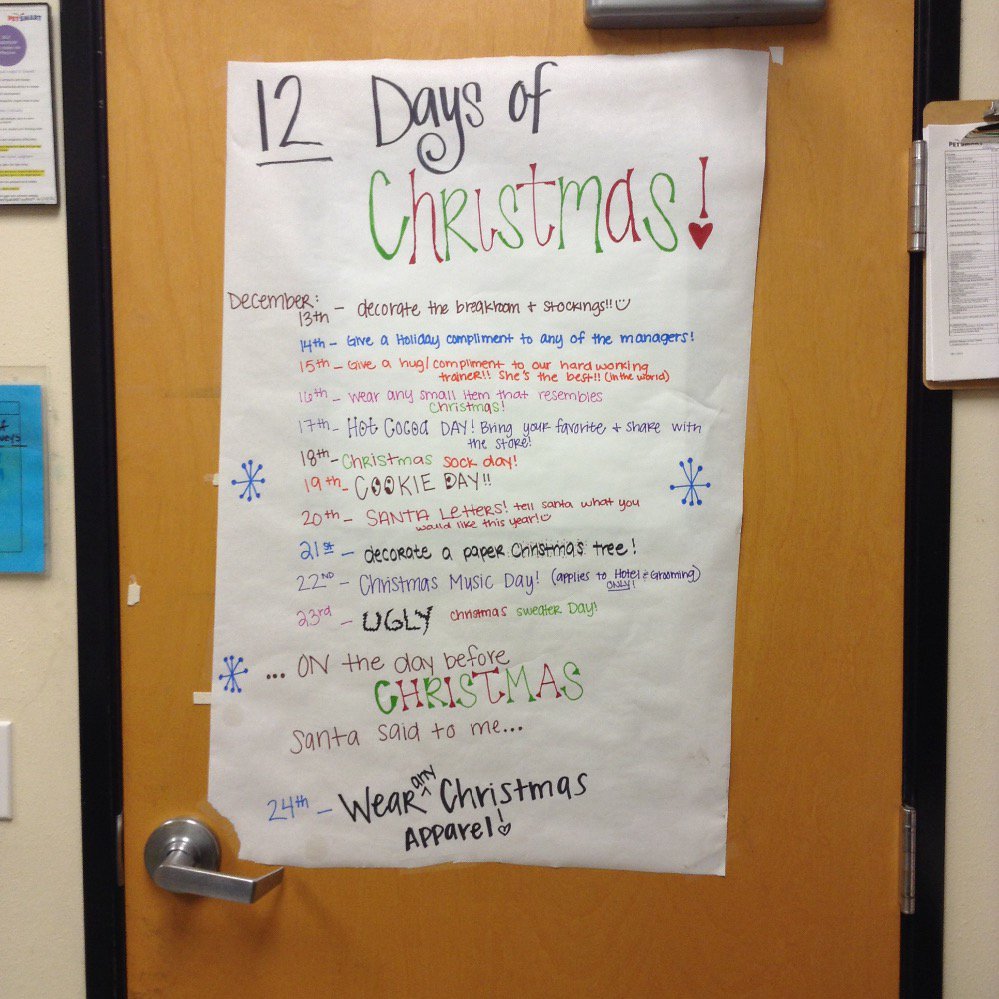 PETSMART
12 Days of
Christmas!
December:
13th - decorate the breakroom + stockings!!
14th - Give a Holiday compliment to any of the managers!
15th - Give a hug/compliment to our hard working
trainer!! She's the best!! (in the world)
16th - wear any small item that resembles
Christmas!
17th - Hot Cocoa DAY! Bring your favorite + share with
the store!
18th - Christmas sock day!
19th - COOKIE DAY!!
20th - SANTA Letters! tell santa what you
would like this year!
21st - decorate a paper Christmas tree!
22ND - Christmas Music Day! (applies to Hotel & Grooming)
ONLY!
23rd - UGLY Christmas sweater Day!
... ON the day before
CHRISTMAS
Santa said to me...
24th - Wear any Christmas
Apparel!
PETSMART